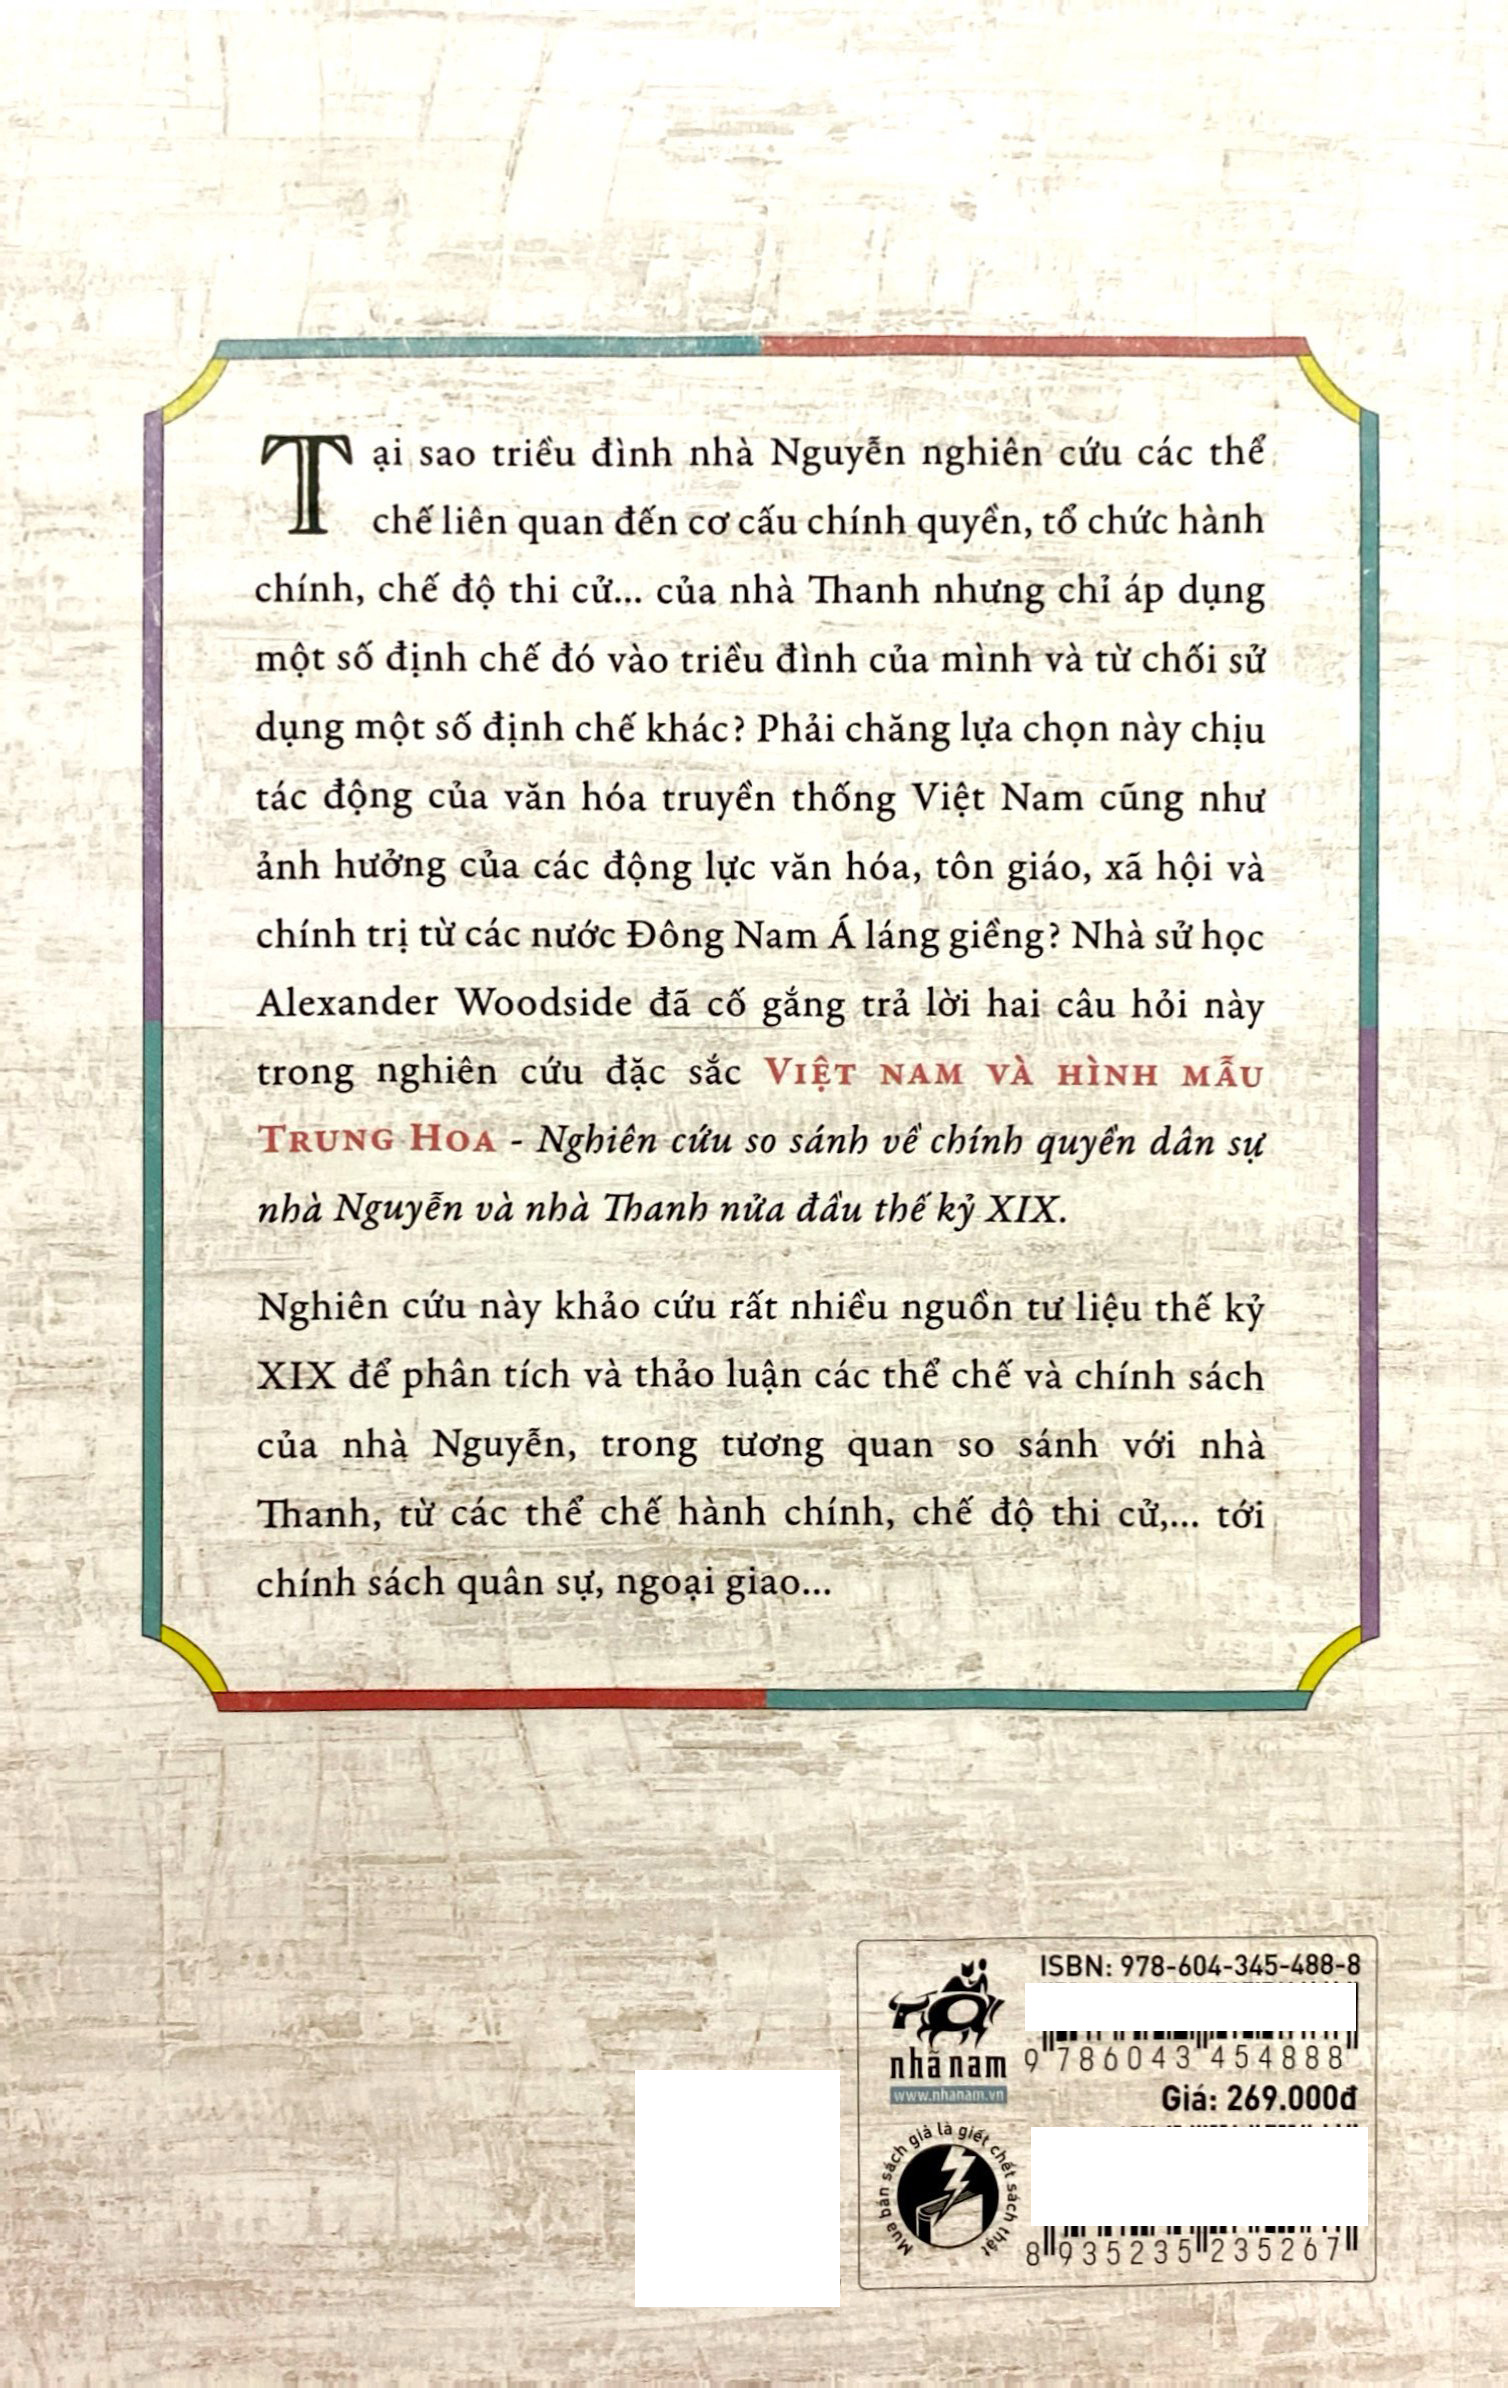 Tại sao triều đình nhà Nguyễn nghiên cứu các thể
chế liên quan đến cơ cấu chính quyền, tổ chức hành
chính, chế độ thi cử... của nhà Thanh nhưng chỉ áp dụng
một số định chế đó vào triều đình của mình và từ chối sử
dụng một số định chế khác? Phải chăng lựa chọn này chịu
tác động của văn hóa truyền thống Việt Nam cũng như
ảnh hưởng của các động lực văn hóa, tôn giáo, xã hội và
chính trị từ các nước Đông Nam Á láng giềng? Nhà sử học
Alexander Woodside đã cố gắng trả lời hai câu hỏi này
trong nghiên cứu đặc sắc VIỆT NAM VÀ HÌNH MẪU
TRUNG HOA - Nghiên cứu so sánh về chính quyền dân sự
nhà Nguyễn và nhà Thanh nửa đầu thế kỷ XIX.
Nghiên cứu này khảo cứu rất nhiều nguồn tư liệu thế kỷ
XIX để phân tích và thảo luận các thể chế và chính sách
của nhà Nguyễn, trong tương quan so sánh với nhà
Thanh, từ các thể chế hành chính, chế độ thi cử,... tới
chính sách quân sự, ngoại giao...
ISBN: 978-604-345-488-8
9 786043 454888
nhã nam
www.nhanam.vn
Giá: 269.000đ
Mua bán sách giả là giết chết sách thật
8 935235 235267